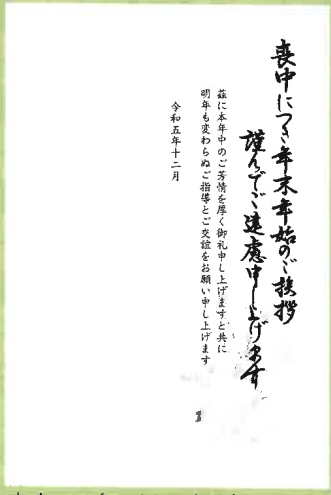 喪中につき年末年始のご挨拶
謹んでご遠慮申し上げます
茲に本年中のご芳情を厚く御礼申し上げますと共に
明年も変わらぬご指導とご交誼をお願い申し上げます
令和五年十二月